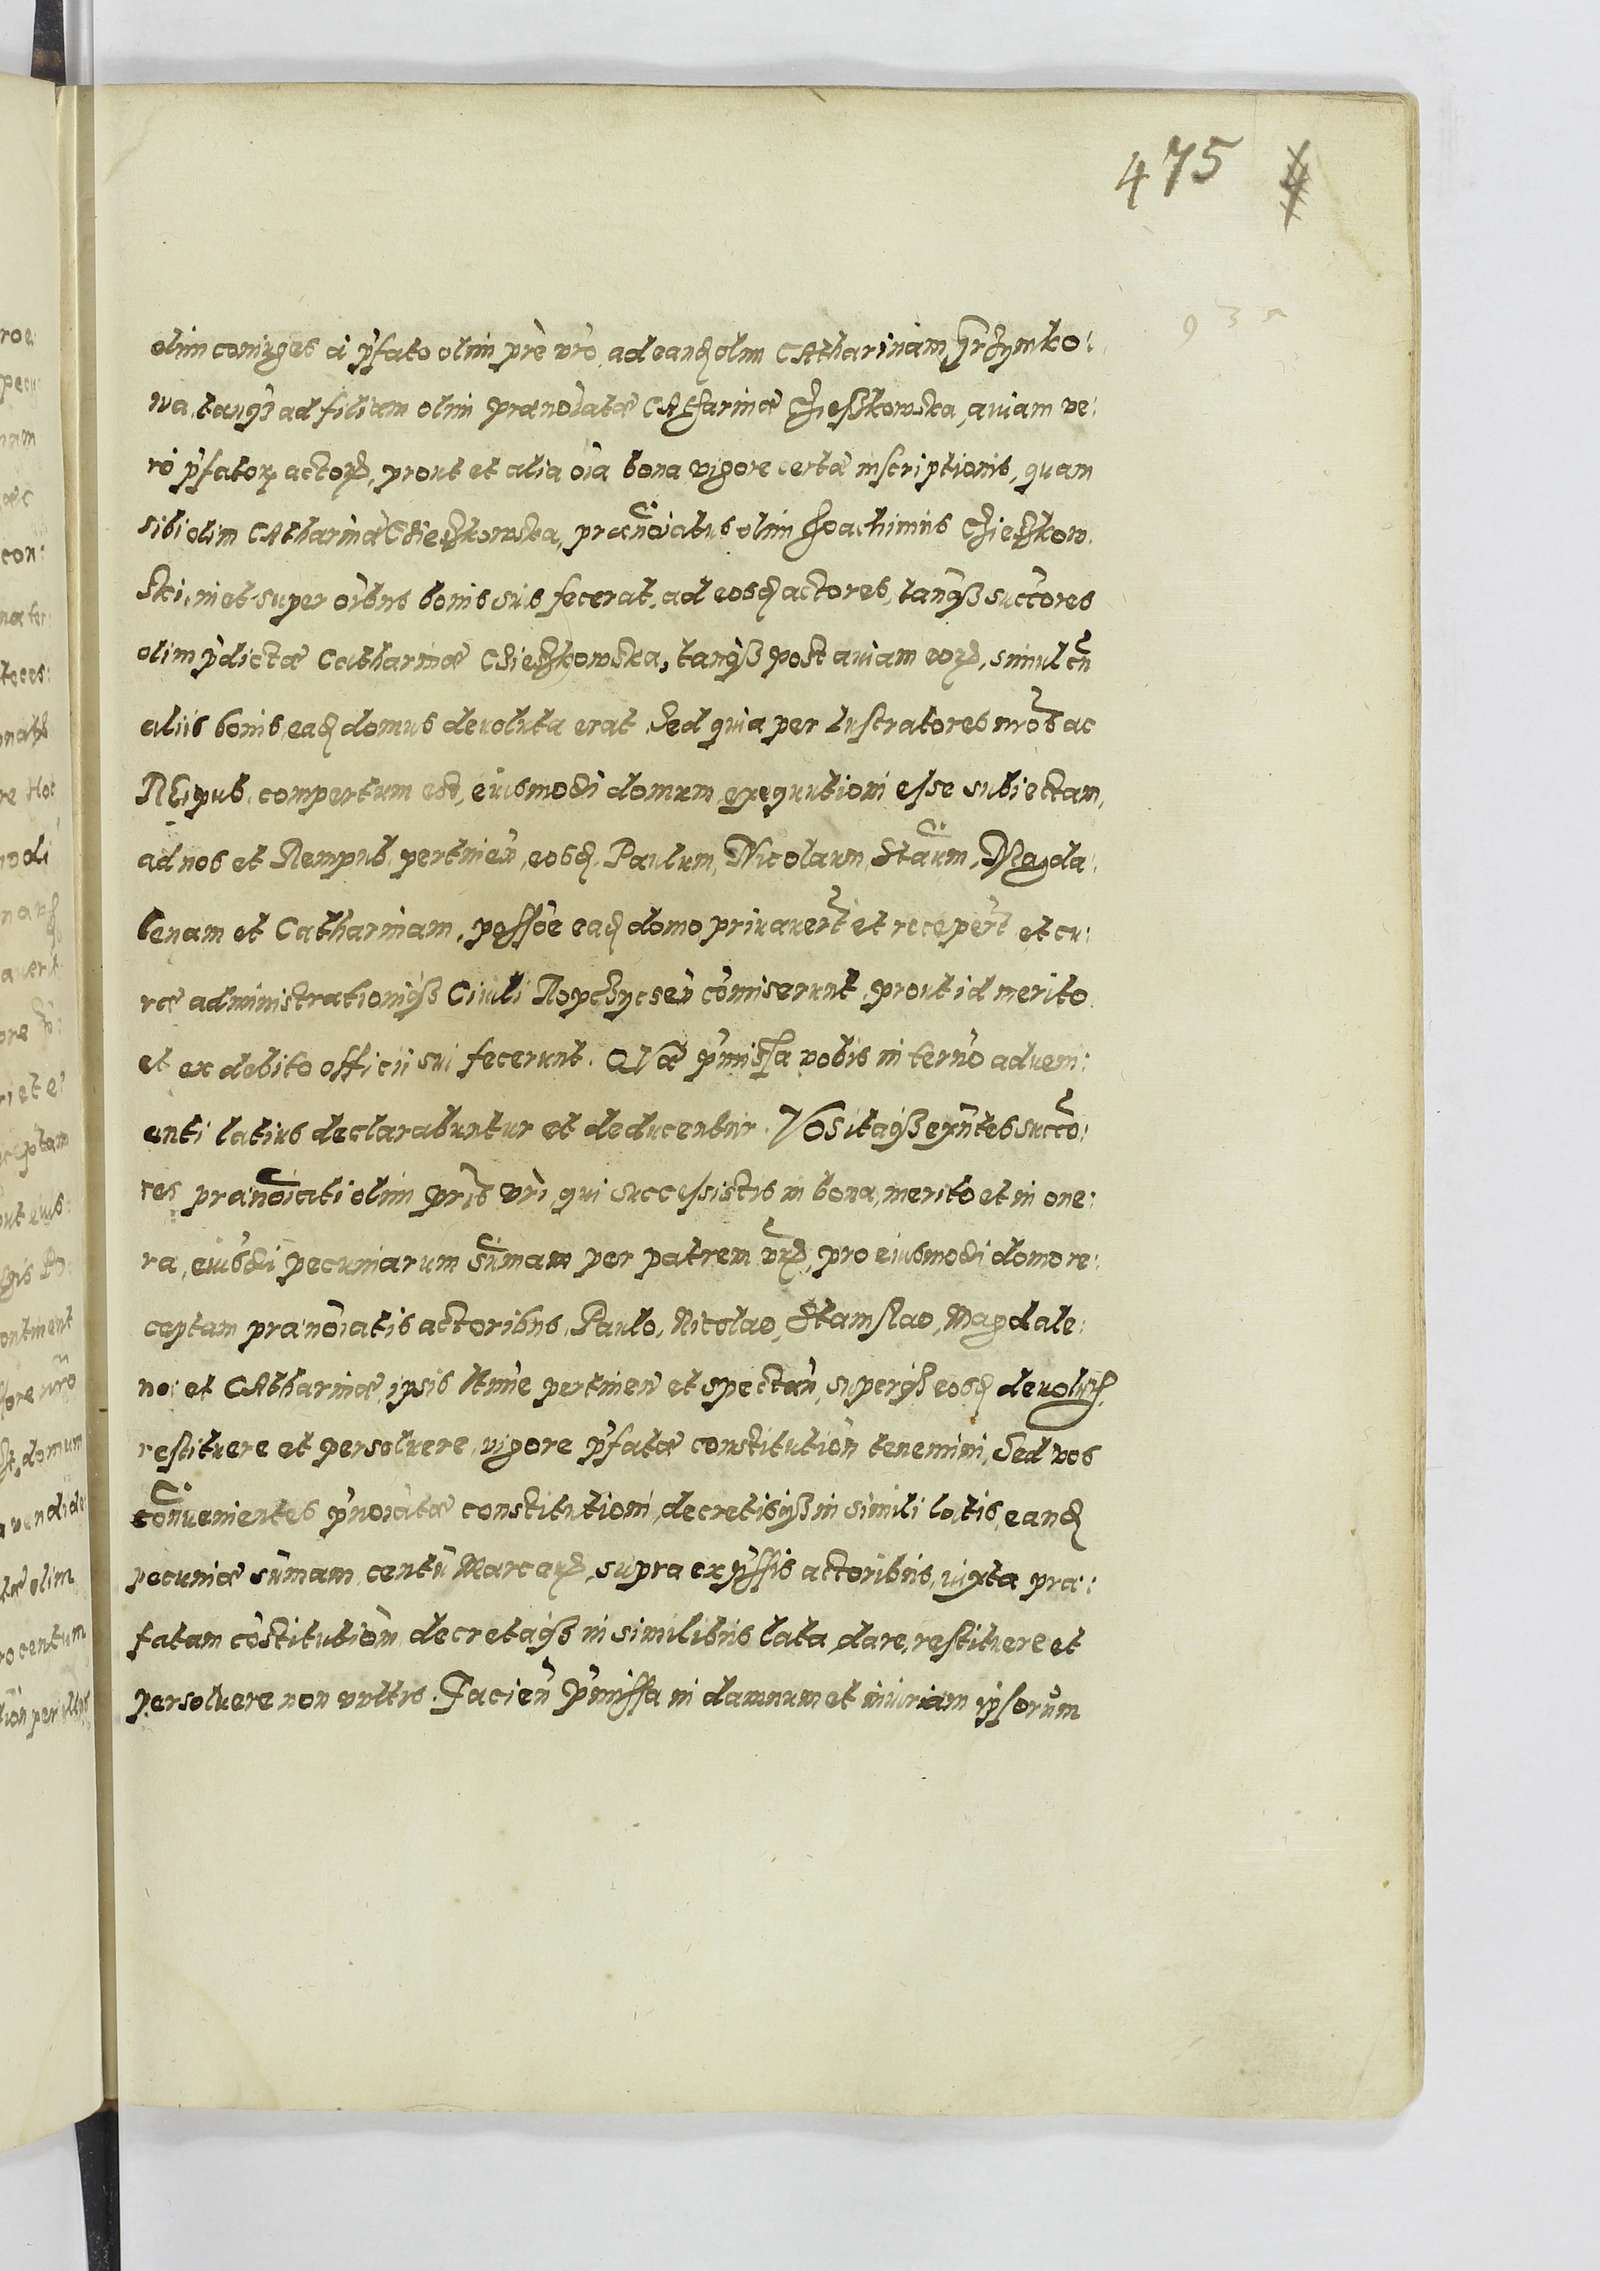 475
olim coniuges à p̃fato olim prẽ vr̃o, ad eandẽ olim Catharinam Grzymko:
wa, tanq̃ ad filiam olim prænoĩatæ Catharinæ Chiesskowska, auiam ve:
rò p̃fator̃ actorũ, prout et alia oĩa bona vigore certæ inscriptionis, quam
sibi olim Catharina Chieszkowska, prænoĩatus olim Joachimus Chieszkow:
ski, in et super oĩbus bonis suis fecerat, ad eosdẽ actores, tanq̃ succ̃ores
olim p̃dictæ Catharinæ Chieszkowska, tanq̃ post auiam eorũ, simul cũ
aliis bonis, eadẽ domus deuoluta erat. Sed quia per Lustratores nr̃os ac
REipub. compertum est, eiusmodi domum exequutioni esse subiectam,
ad nos et Rempub. pertineñ, eosdẽ Paulum, Nicolaum, Staũm, Magda:
lenam et Catharinam, possõe eadẽ domo priuauer̃t et receper̃t et cu:
ræ administrationiq̃ Ciuili Ropchyceñ cõmiserunt, prout id merito
et ex debito officii sui fecerunt. Quæ p̃missa vobis in ter̃no adueni:
enti latius declarabuntur et deducentur. Vos itaq̃ exñtes succõ:
res prænoĩati olim pr̃is vr̃i, qui successistis in bona, merito et in one:
ra, eiusdẽ pecuniarum sum̃am per patrem vr̃ũ, pro eiusmodi domo re:
ceptam prænoĩatis actoribus, Paulo, Nicolao, Stanislao, Magdale:
næ et Catharinæ, ipsis ltim̃e pertineñ et spectañ, superq̃ eosdẽ deuolut̃,
restituere et persoluere, vigore p̃fatæ constitutioñ tenemini, Sed vos
cõnuenientes p̃noĩatæ constitutioni, decretisq̃ in simili latis, eandẽ
pecuniæ sum̃am centũ Marcarũ, supra exp̃ssis actoribus, iuxta præ:
fatam cõstitutioñ decretaq̃ in similibus lata, dare, restituere et
persoluere non vultis. Facieñ p̃missa in damnum et iniuriam ipsorum